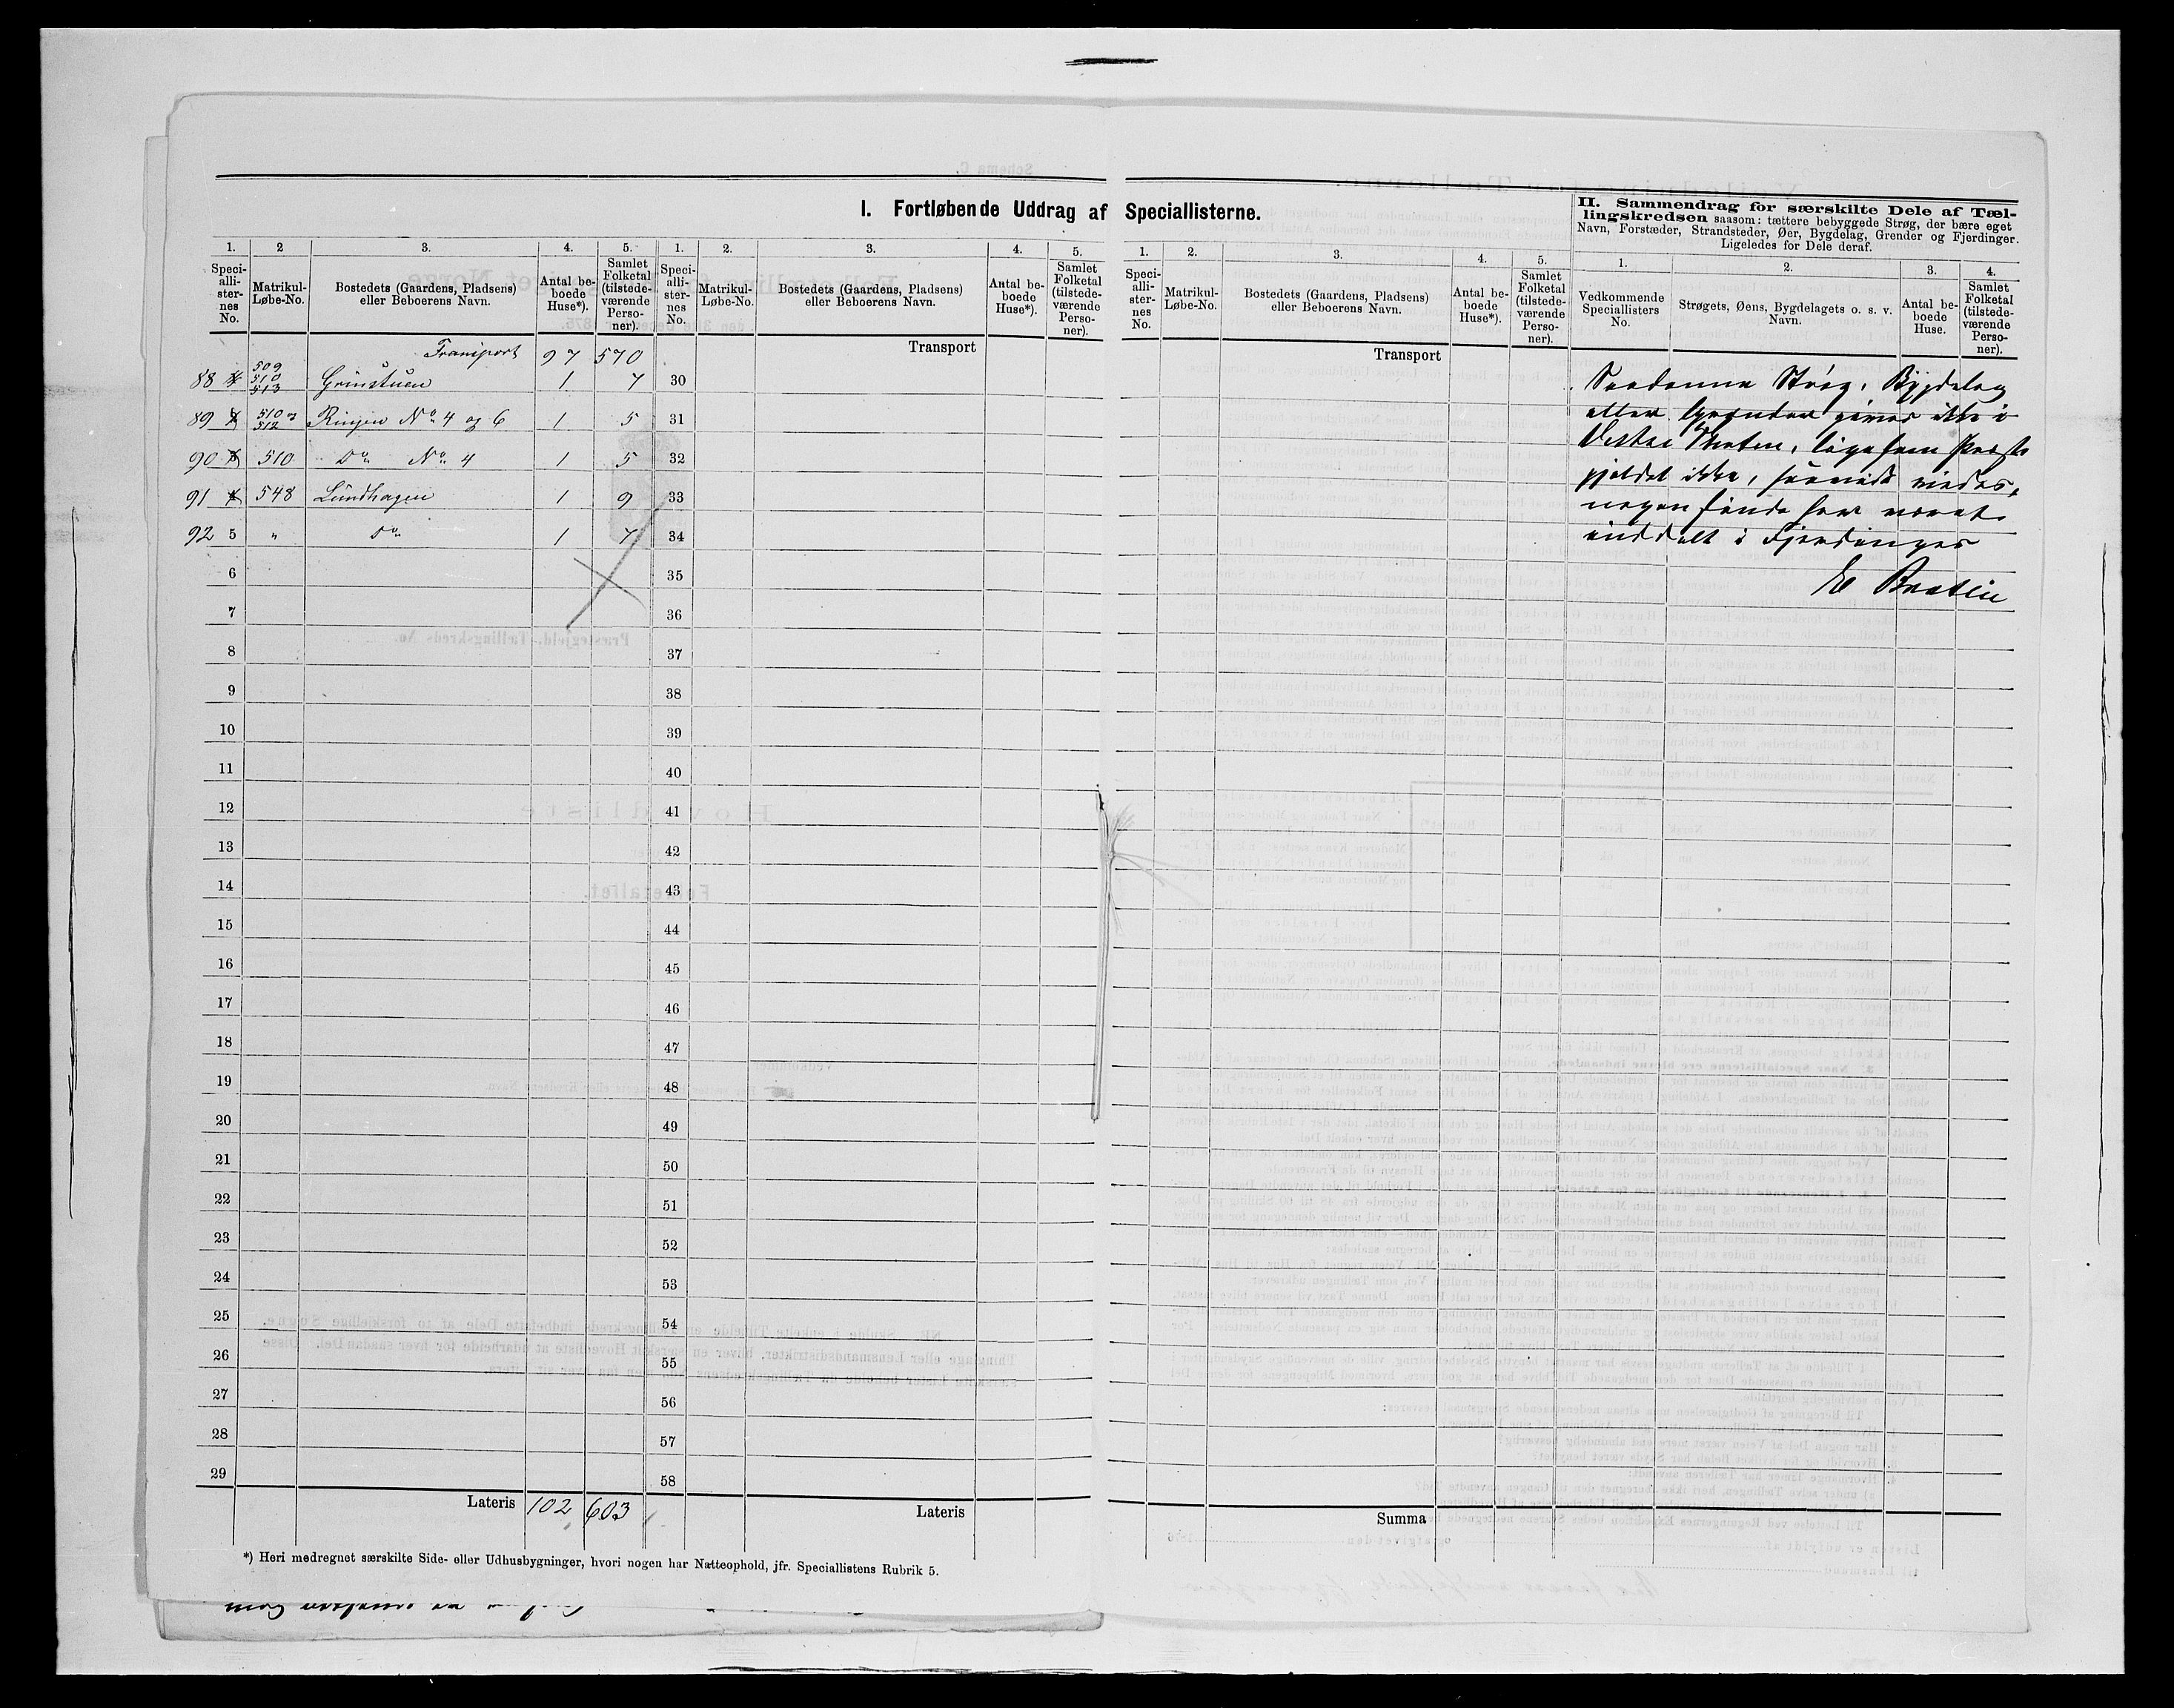 I. Fortløbende Uddrag af Speciallisterne.
II. Sammendrag for særskilte Dele af Tæl-
lingskredsen saasom: tættere bebyggede Strøg, der bære eget
Navn, Forstæder, Strandsteder, Øer, Bygdelag, Grender og Fjerdinger.
Ligeledes for Dele deraf.
1. 2 3. 4. 5. 1. 2. 3. 4. 5. 1. 2. 3. 4. 5. 1. 2. 3. 4.
Speci-alli-ster-nes No. Matrikul-Løbe-No. Bostedets (Gaardens, Pladsens) eller Beboerens Navn. Antal be-boede Huse*). Samlet Folketal (tilstede-værende Perso-ner).
Speci-alli-ster-nes No. Matrikul-Løbe-No. Bostedets (Gaardens, Pladsens) eller Beboerens Navn. Antal be-boede Huse*). Samlet Folketal (tilstede-værende Perso-ner).
Speci-alli-ster-nes No. Matrikul-Løbe-No. Bostedets (Gaardens, Pladsens) eller Beboerens Navn. Antal be-boede Huse*). Samlet Folketal (tilstede-værende Perso-ner).
Vedkommende Speciallisters No. Strøgets, Øens, Bygdelagets o. s. v. Navn. Antal be-boede Huse. Samlet Folketal (tilstede-værende Perso-ner).
Transport 97 570
88 509 510 513 Grinstuen 1 7
89 510 og 512 Ringen No. 4 og 6 1 5
90 510 Do. No. 4 1 5
91 548 Lundhagen 1 9
92 5 " Do. 1 7
6
7
8
9
10
11
12
13
14
15
16
17
18
19
20
21
22
23
24
25
26
27
28
29
Lateris 102 603
Transport
30
31
32
33
34
35
36
37
38
39
40
41
42
43
44
45
46
47
48
49
50
51
52
53
54
55
56
57
58
Lateris
Transport
Summa
Saadanne Strøg, Bygdelag
eller Grender gives ikke i
Vestre ligesom Præste
gjeldet ikke, saavidt vides,
nogensinde har været
inddelt i Fjerdinger
E Braatin
*) Heri medregnet særskilte Side- eller Udhusbygninger, hvori nogen har Natteophold, jfr. Speciallistens Rubrik 5.